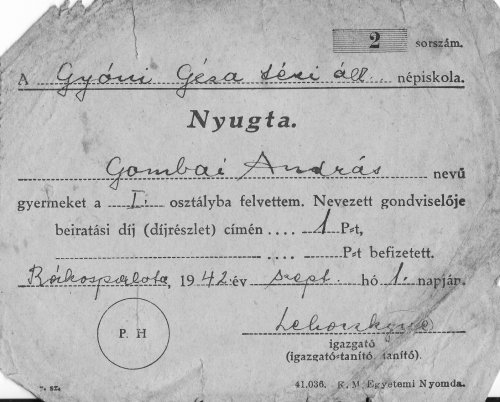 2 sorszám.
A Gyóni Géza téri áll. népiskola.
Nyugta.
Gombai András nevű
gyermeket a I. osztályba felvettem. Nevezett gondviselője
beiratási díj (díjrészlet) címén .... 1 P-t,
.... P-t befizetett.
Rákospalota, 1942 év szept. hó 1. napján.
P. H
igazgató
(igazgató-tanító, tanító).
41.036. K. M. Egyetemi Nyomda.